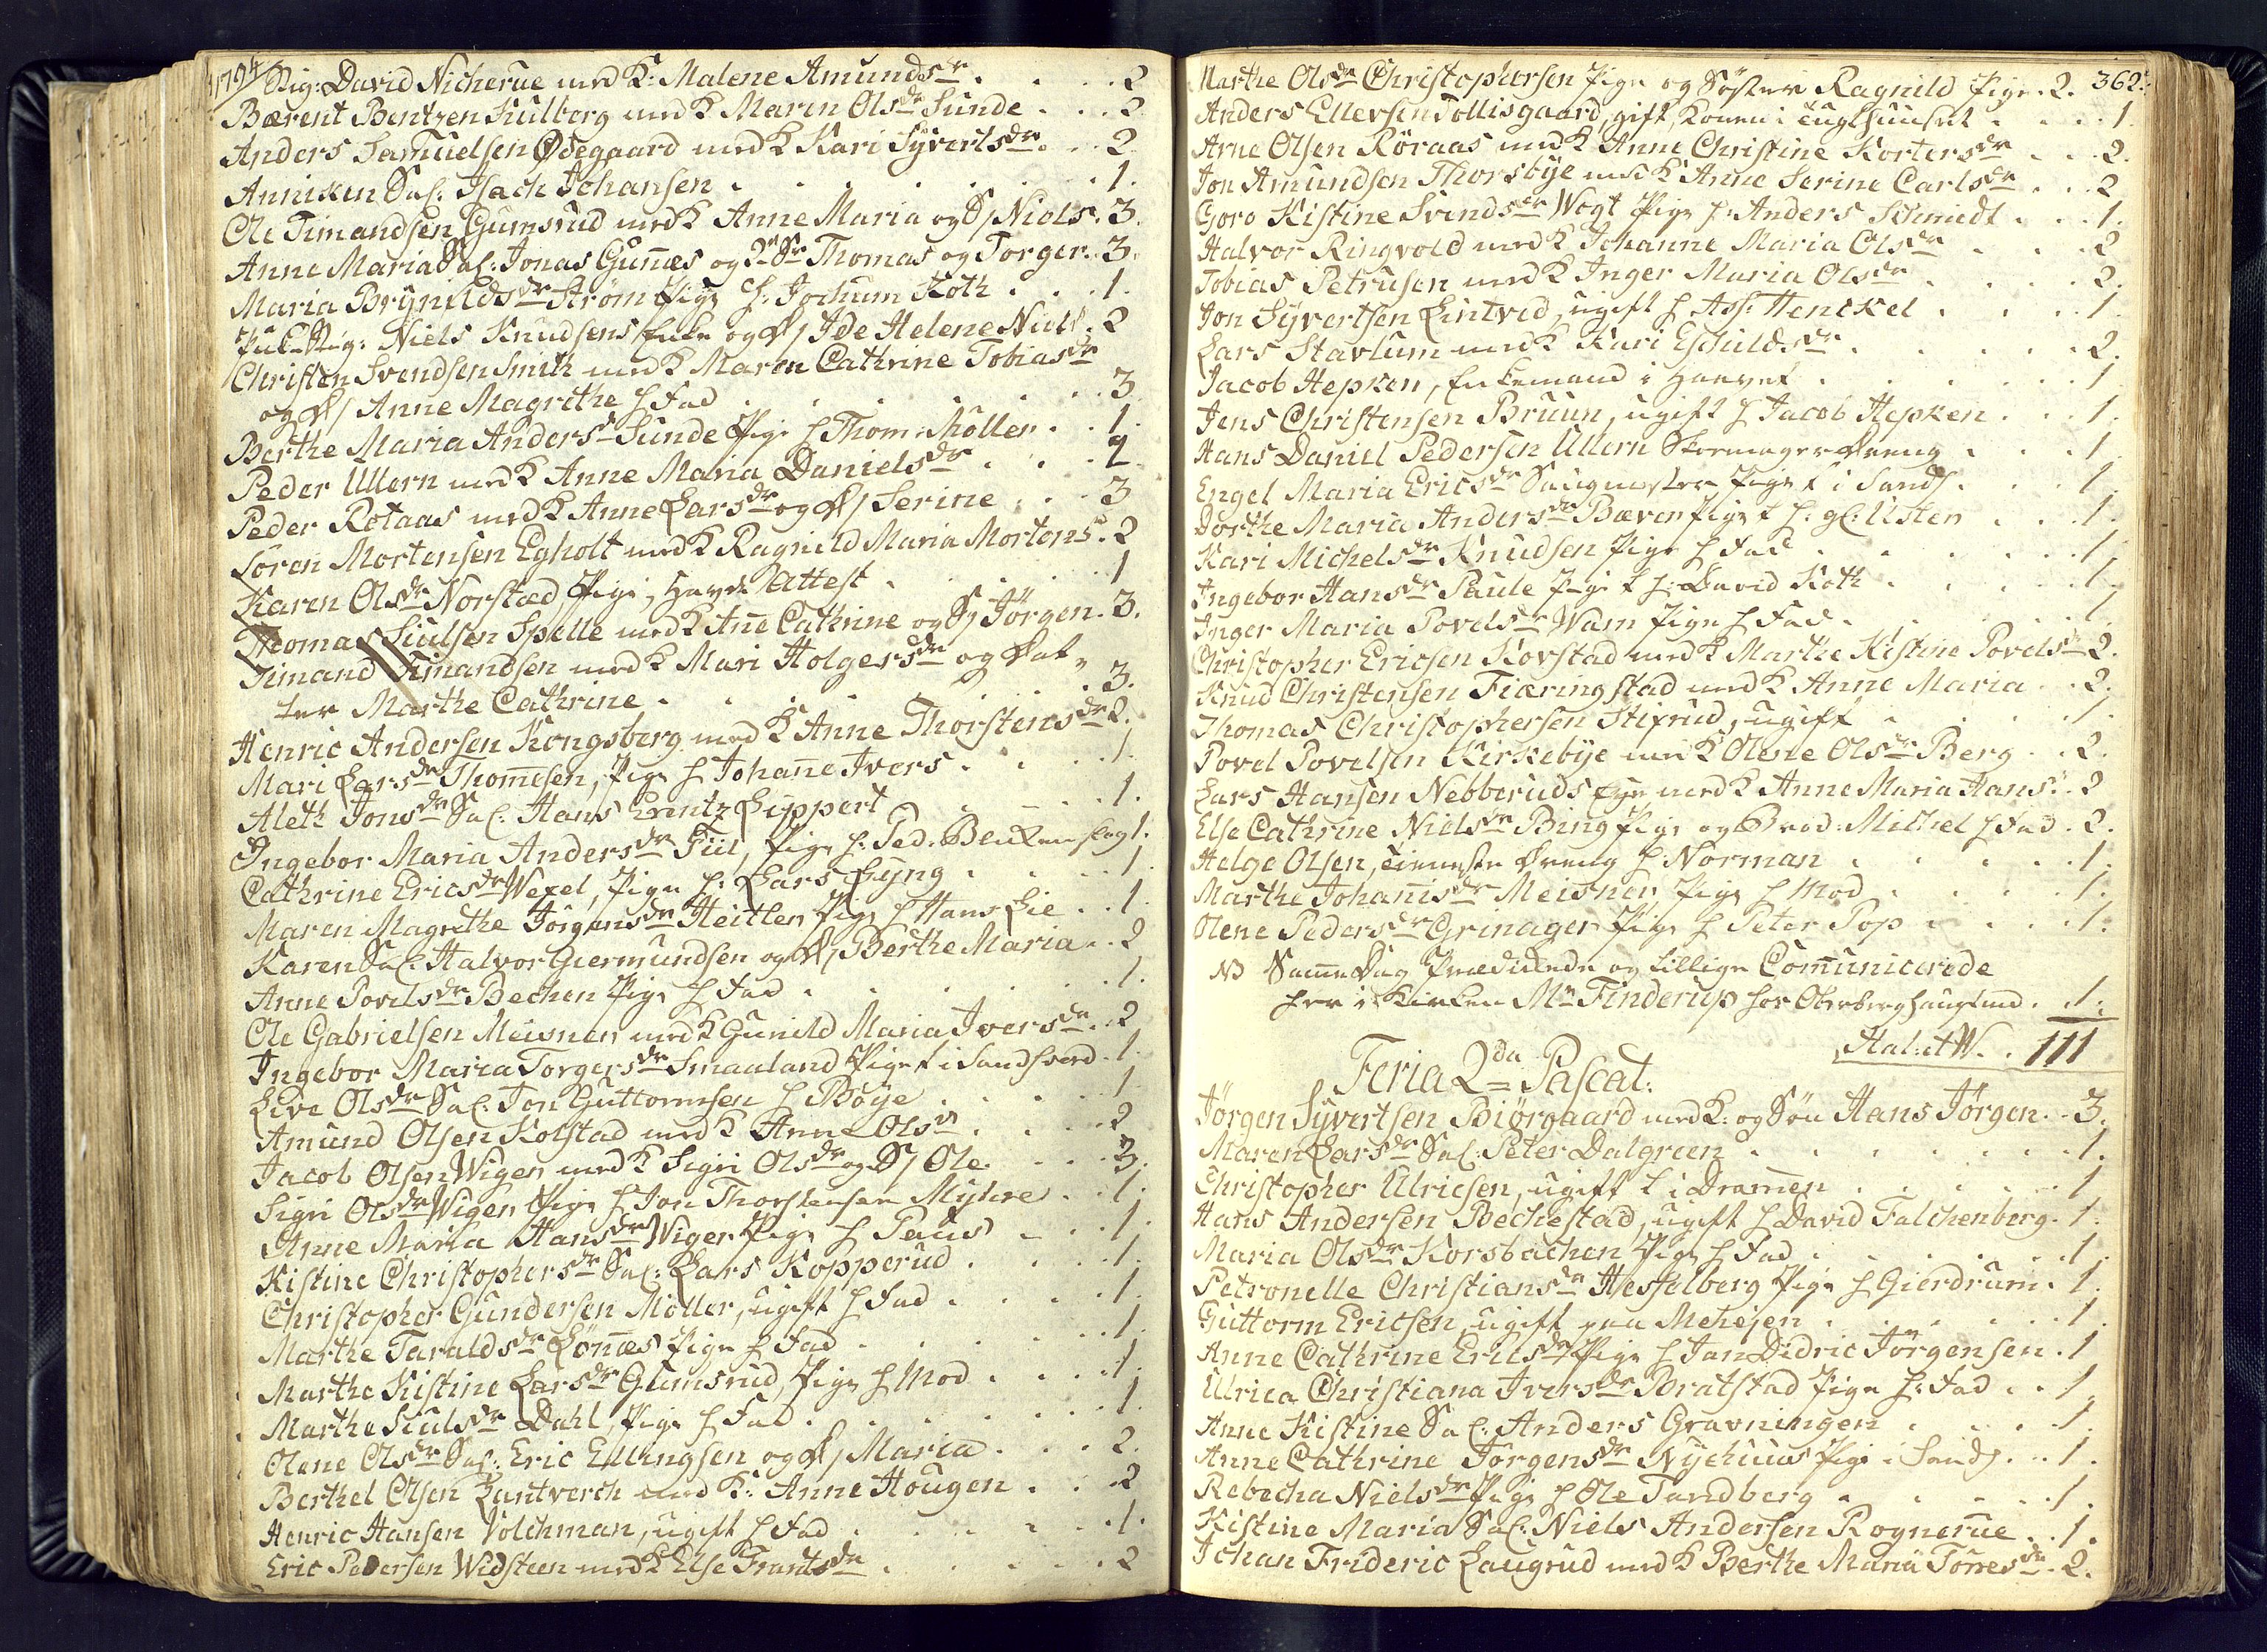 1794
Stig: David Nicherue med K: Malene Amundsdr . . . 2
Bærent Bentzen Kulberg med K Maren Olsdr Sunde . . . 2.
Anders Samuelsen Ødegaard med K Kari Syvertsdr . . 2.
Anniken Sal: Isach Johansen . . . . . . 1.
Ole Timandsen Gumsrud med K Anne Maria og S/ Niels . 3.
Anne Maria Sal: Jonas Gunnæs og 2 Sr Thomas og Torger . 3.
Maria Brynildsdr Strøm Pige h: Jochum Koth . . . 1.
Stig: Niels Knudsens Enke og D/ Ide Helene Niels . 2
Christen Svendsen Smith med K Maren Cathrine Tobiasdr
og D/ Anne Magrethe h Fad . . . . . 3
Berthe Maria Anders Sunde Pige h Thom: Møller . . 1.
Peder Ullern med K Anne Maria Danielsdr . . . 2
Peder Rotaas med K Anne Larsdr og D/ Serine . . . 3
Søren Mortensen Egholt med K Ragnild Maria Mortens . 2
Karen Olsdr Norstad Pige, havde Attest . . . 1
Thomas Siulsen Spelle med K Anne Cathrine og S/ Jørgen . 3.
Timand Timandsen med K Mari Holgersdr og Dat-
ter Marthe Cathrine . . . . . . 3.
Henric Andersen Kongsberg med K Anne Thorstensdr 2.
Mari Larsdr Thomesen, Pige h Johanne Ivers . . . 1.
Aleth Jonsdr Sal: Hans Lippert . . . 1.
Ingebor Maria Andersdr Piil, Pige h: Ped. 1.
Cathrine Ericsdr Wexel, Pige h: Lars Lyng . . . 1.
Maren Magrethe Jørgensdr Heitler Pige h Hans Lie . . 1.
Karen Sal: Halvor Giermundsen og D/ Berthe Maria . . 2
Anne Povelsdr Bechen Pige h Fad . . . . . 1.
Ole Gabrielsen Meisner med K Gunild Maria Iversdr . 2
Ingebor Maria Torgersdr Smaaland Pige t i Sandsverd . 1.
Live Olsdr Sal: Jon Guttormsen h Bøye . . . 1
Amund Olsen Kolstad med K Anne Olsdr . . . 2
Jacob Olsen Wiger med K Sigri Olsdr og S/ Ole . . . 3.
Sigri Olsdr Wiger Pige h Jon Thorstensen Myhre . . 1.
Anne Maria Hansdr Wiger Pige h Paus . . . 1.
Kistine Christophersdr Sal: Lars Kopperud . . . 1.
Christopher Gundersen Møller, ugift h Fad . . . 1.
Marthe Taraldsdr Lønnæs Pige h Fad . . . . 1.
Marthe Kistine Larsdr Gumsrud, Pige h Mod . . . 1.
Marthe Siulsdr Dahl, Pige h Fad . . . . . 1.
Olene Olsdr Sal: Eric Ellingsen og D/ Maria . . . 2.
Berthel Olsen Lantverch med K: Anne Hougen . . 2
Henric Hansen Volchman, ugift h Fad . . . . 1.
Eric Pedersen Widsteen med K Else Frantsdr . . . . 2
Marthe Olsdr Christophersen Pige og Søster Ragnild Pige . 2. 362.
Anders Ellersen Tollisgaard, gift, Konen i Tugthuuset . . . 1.
Arne Olsen Røraas med K Anne Christine Kortersdr . . 2.
Jon Amundsen Thorsbye med K Anne Serine Carlsdr . . 2
Goro Kistine Svendsdr Wogt Pige h: Anders Schmiedt . . . 1.
Halvor Ringvold med K Johanne Maria Olsdr . . . 2
Tobias Petrusen med K Inger Maria Olsdr . . . 2.
Jon Syvertsen Lintved, ugift h Ass: Henckel . . . 1
Lars Stavlum med K Kari Eschildsdr . . . . 2.
Jacob Hepken, Enkemand i . . . . 1
Jens Christensen Bruun, ugift h Jacob Hepken . . . 1.
Hans Daniel Pedersen Ullern Skomagerdreng . . . 1
Engel Maria Ericsdr Saugmester Pige t i Sands . . . 1
Dorthe Maria Andersdr Bæver Pige t h: gl: Usten . . . 1.
Kari Michelsdr Knudsen Pige h Fad . . . . 1.
Ingebor Hansdr Paule Pige t h: David Koth . . . 1.
Inger Maria Povelsdr Wam Pige h Fad . . . . 1.
Christopher Ericsen Korstad med K Marthe Kistine Povelsdr 2.
Knud Christensen Fiæringstad med K Anne Maria . . 2.
Thomas Christophersen Stixrud, ugift . . . . 1.
Povel Povelsen Kirkebye med K Olene Olsdr Berg . . 2.
Lars Hansen Nebberuds Eye med K Anne Maria Hans . 2
Else Cathrine Nielsdr Bing Pige og Brod: Michel h Fad . 2.
Helge Olsen, tieneste Dreng h Norman . . . . 1.
Marthe Johannisdr Meisner Pige h Mod . . . . 1.
Olene Pedersdr Grinager Pige h Peter Pop . . . . 1.
NB Samme Dag Prædickede og tillige Comunicerede
her i Kirken Mr Finderup hos Oberberghauptmd . . 1.
Hal: et W. . 111
Feria 2da Pascat:
Jørgen Syvertsen Biørgaard med K: og Søn Hans Jørgen . . 3.
Maren Larsdr Sal: Peter Dalgreen . . . . . 1.
Christopher Ulricsen, ugift t i Dramen . . . . 1
Hans Andersen Bechestad, ugift h David Falchenberg . 1.
Maria Olsdr Korsbachen Pige h Fad . . . . . 1.
Petronelle Christiansdr Hesselberg Pige h Gierdrum . 1.
Guttorm Ericsen, ugift paa Mehejen . . . . . 1.
Anne Cathrine Ericsdr Pige h Jan Didric Jørgensen . 1
Ulrica Christiana Iversdr Bratstad Pige h: Fad . . 1.
Anne Kistine Sal: Anders Gravningen . . . . 1.
Anne Cathrine Jørgensdr Nyehuus Pige i Sands . . 1.
Rebecha Nielsdr Pige h Ole Tandberg . . . . 1.
Kistine Maria Sal: Niels Andersen Rognerue . . 1.
Johan Frideric Laugrud med K Berthe Maria Torresdr . 2.